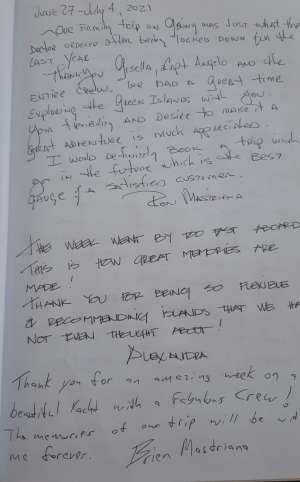 June 27 - July 4, 2021
~ Our Family trip on was Just what the
Doctor ordered after being locked down for the
LAST YEAR
~ Thank you Gisella, Capt Angelo and the
entire Crew. We had a great time
Exploring the Greek Islands with you.
Your flexibility and desire to make it a
great adventure is much appreciated.
I would definitely Book a trip with
in the future which is the BEST
gauge of a satisfied customer.
Ron Mastriana
THE WEEK WENT BY TOO FAST ABOARD
THIS IS HOW GREAT MEMORIES ARE
MADE!
THANK YOU FOR BEING SO FLEXIBLE
& RECOMMENDING ISLANDS THAT WE HA
NOT EVEN THOUGHT ABOUT!
ALEXANDRA
Thank you for an amazing week on a
beautiful Yacht with a Fabulous Crew!
The memories of our trip will be wit
me forever. Brien Mastriana